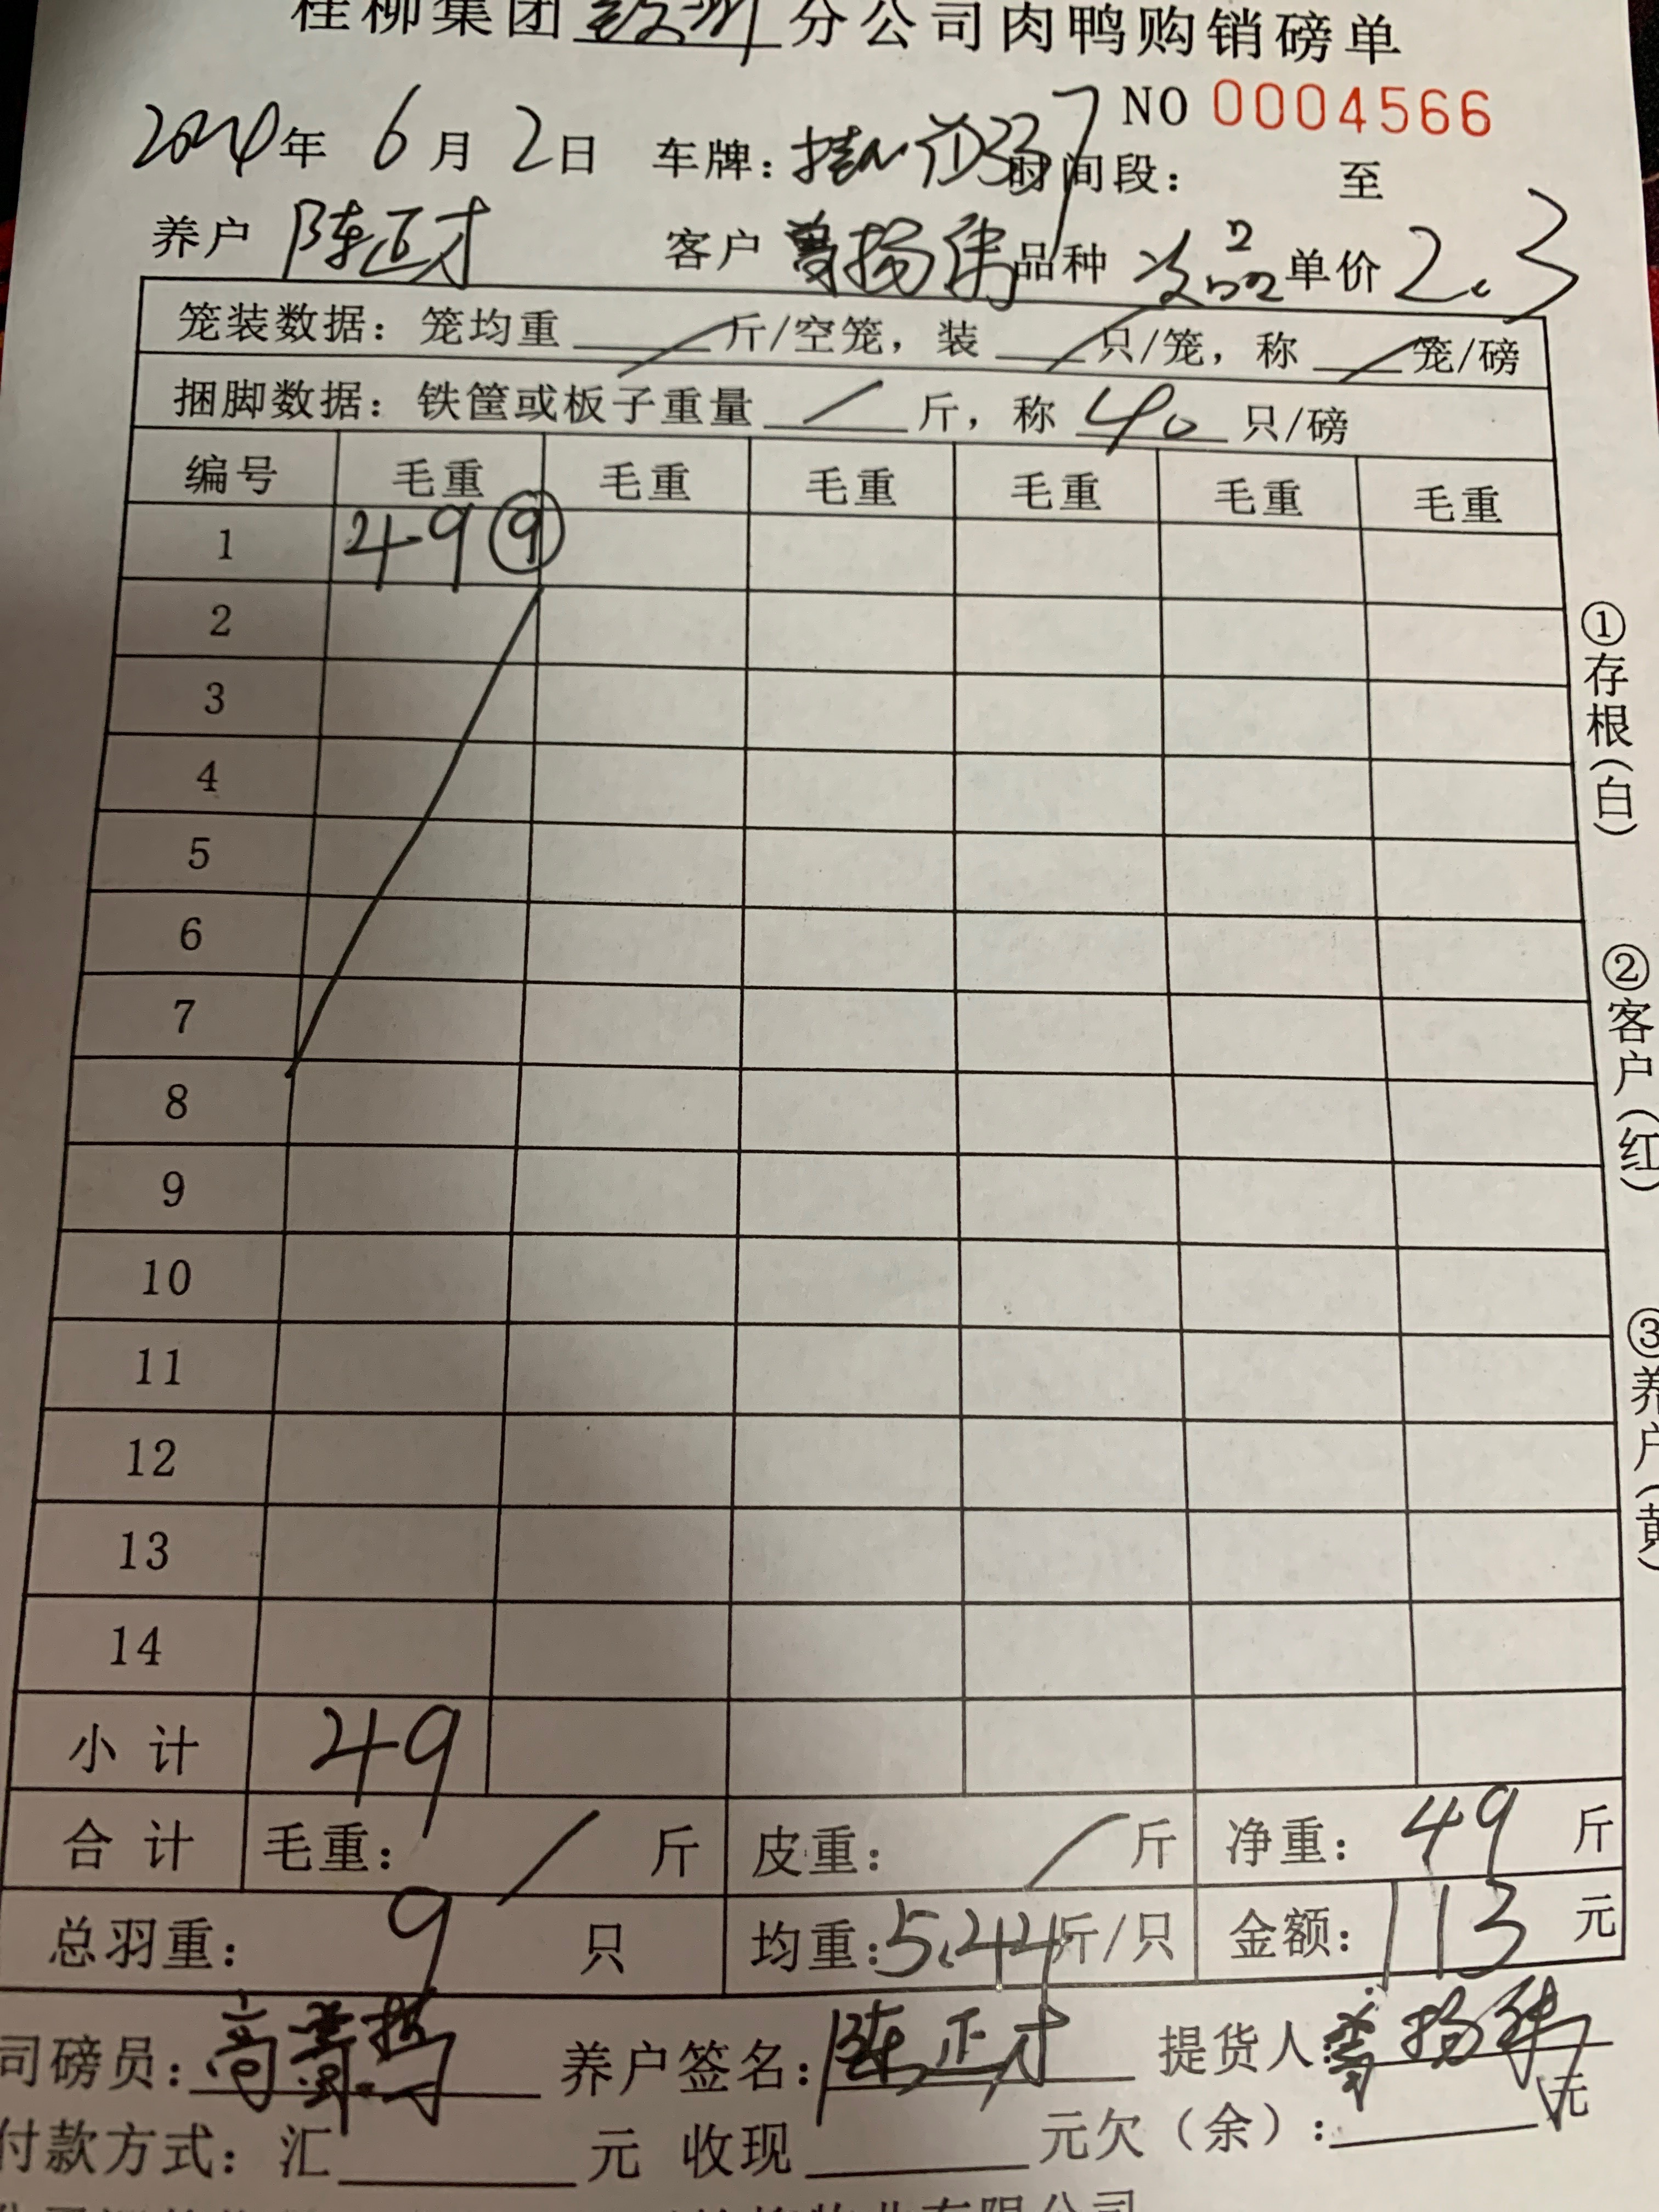 桂柳集团 分公司肉鸭购销磅单
NO 0004566
2024年 6月 2日 车牌: 时间段: 至
养户 陈正才 客户 曾扬 品种 次品2 单价 2.3
笼装数据：笼均重 / 斤/空笼，装 / 只/笼，称 / 笼/磅
捆脚数据：铁筐或板子重量 / 斤，称 40 只/磅
编号 毛重 毛重 毛重 毛重 毛重 毛重
1 49 ⑨
2
3
4
5
6
7
8
9
10
11
12
13
14
小计 49
合计 毛重： / 斤 皮重： / 斤 净重： 49 斤
总羽重： 9 只 均重：5.44斤/只 金额：113元
司磅员： 养户签名：陈正才 提货人：曾扬
付款方式：汇 元 收现 元欠（余）： 元
①存根(白)
②客户(红)
③养户(黄)